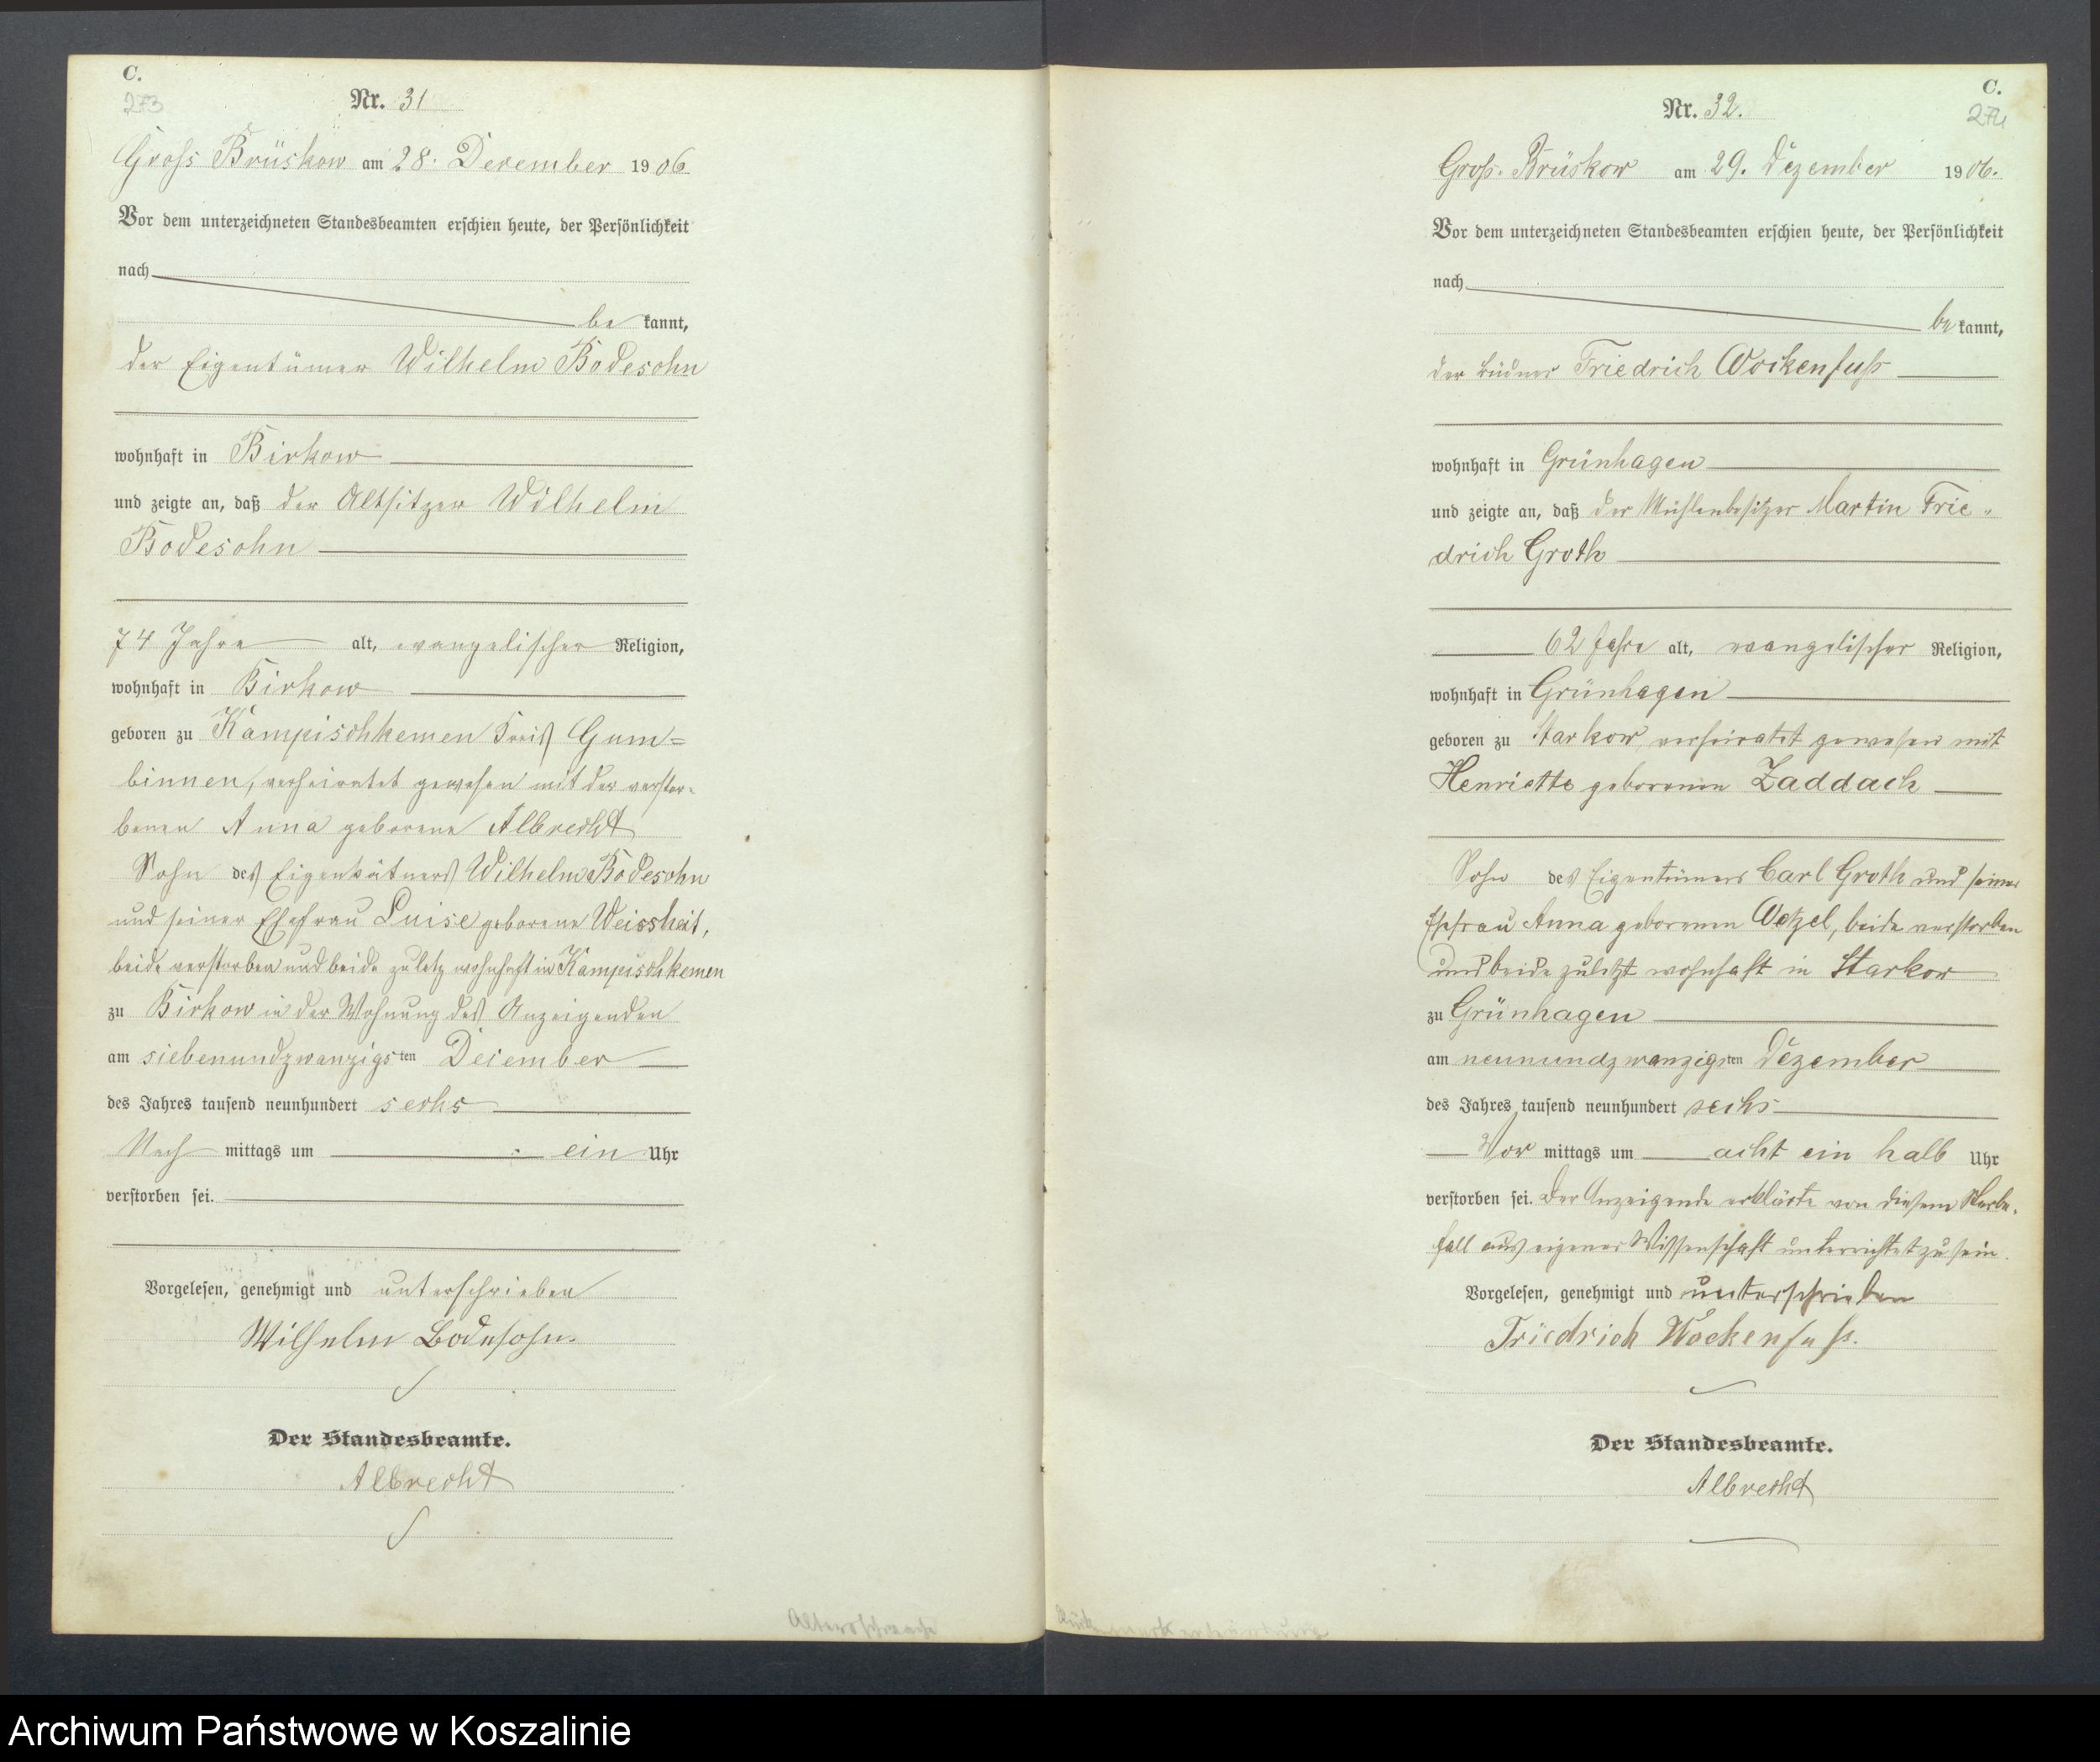 C.
273
Nr. 31
Gross Brüskow am 28. Dezember 1906
Vor dem unterzeichneten Standesbeamten erschien heute, der Persönlichkeit
nach
be kannt,
der Eigentümer Wilhelm Bodesohn
wohnhaft in Birkow
und zeigte an, daß der Altsitzer Wilhelm
Bodesohn
74 Jahre alt, evangelischer Religion,
wohnhaft in Birkow
geboren zu Kampischkemen Kreis Gum=
binnen, verheiratet gewesen mit der verstor-
benen Anna geborene Albrecht
Sohn des Eigenkätners Wilhelm Bodesohn
und seiner Ehefrau Luise geborene Weissheit,
beide verstorben und beide zuletz wohnhaft in Kampischkemen
zu Birkow in der Wohnung des Anzeigenden
am siebenundzwanzigsten Dezember
des Jahres tausend neunhundert sechs
Nach mittags um ein Uhr
verstorben sei.
Vorgelesen, genehmigt und unterschrieben
Wilhelm Bodesohn.
Der Standesbeamte.
Albrecht
Altersschwäche
C.
274
Nr. 32.
Gross-Brüskow am 29. Dezember 1906.
Vor dem unterzeichneten Standesbeamten erschien heute, der Persönlichkeit
nach
be kannt,
der Büdner Friedrich Wockenfuß
wohnhaft in Grünhagen
und zeigte an, daß der Mühlenbesitzer Martin Frie-
drich Groth
62 Jahre alt, evangelischer Religion,
wohnhaft in Grünhagen
geboren zu Starkow, verheiratet gewesen mit
Henriette geborenen Zaddach
Sohn des Eigentümers Carl Groth und seiner
Ehefrau Anna geborenen Wetzel, beide verstorben
und beide zuletzt wohnhaft in Starkow
zu Grünhagen
am neunundzwanzigsten Dezember
des Jahres tausend neunhundert sechs
Vor mittags um acht ein halb Uhr
verstorben sei. Der Anzeigende erklärte von diesem Sterbe-
fall aus eigener Wissenschaft unterrichtet zu sein.
Vorgelesen, genehmigt und unterschrieben
Friedrich Wockenfuß.
Der Standesbeamte.
Albrecht
Archiwum Państwowe w Koszalinie